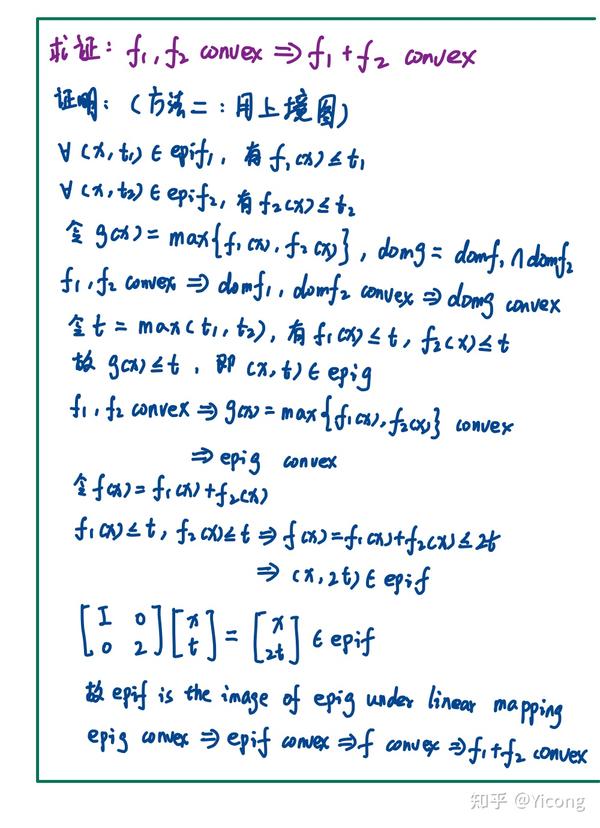 求证: f₁, f₂ convex ⇒ f₁ + f₂ convex
证明: (方法二: 用上境图)
∀ (x, t₁) ∈ epif₁, 有 f₁(x) ≤ t₁
∀ (x, t₂) ∈ epif₂, 有 f₂(x) ≤ t₂
令 g(x) = max{f₁(x), f₂(x)}, domg = domf₁ ∩ domf₂
f₁, f₂ convex ⇒ domf₁, domf₂ convex ⇒ domg convex
令 t = max(t₁, t₂), 有 f₁(x) ≤ t, f₂(x) ≤ t
故 g(x) ≤ t, 即 (x, t) ∈ epig
f₁, f₂ convex ⇒ g(x) = max{f₁(x), f₂(x)} convex
⇒ epig convex
令 f(x) = f₁(x) + f₂(x)
f₁(x) ≤ t, f₂(x) ≤ t ⇒ f(x) = f₁(x) + f₂(x) ≤ 2t
⇒ (x, 2t) ∈ epif
[I 0; 0 2] [x; t] = [x; 2t] ∈ epif
故 epif is the image of epig under linear mapping
epig convex ⇒ epif convex ⇒ f convex ⇒ f₁ + f₂ convex
知乎 @Yicong